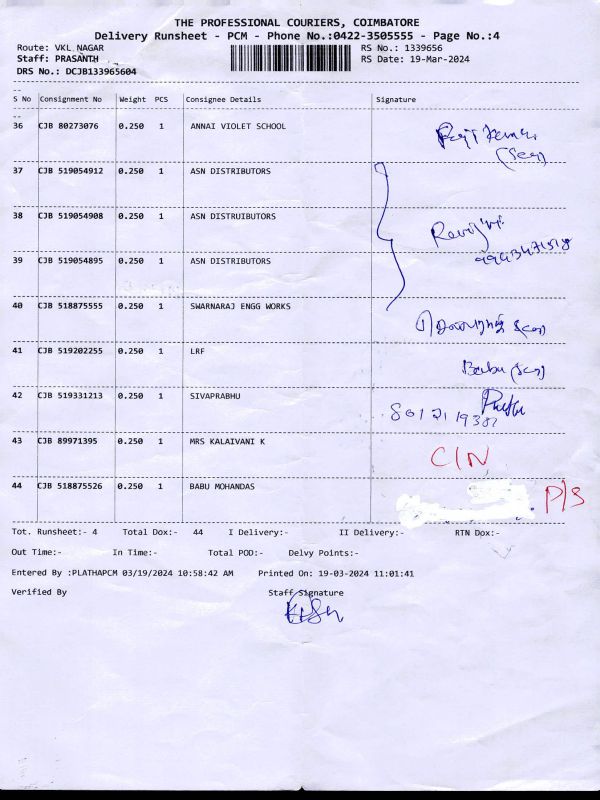 THE PROFESSIONAL COURIERS, COIMBATORE
Delivery Runsheet - PCM - Phone No.:0422-3505555 - Page No.:4
Route: VKL NAGAR RS No.: 1339656
Staff: PRASANTH RS Date: 19-Mar-2024
DRS No.: DCJB133965604
S No Consignment No Weight PCS Consignee Details Signature
36 CJB 80273076 0.250 1 ANNAI VIOLET SCHOOL
37 CJB 519054912 0.250 1 ASN DISTRIBUTORS
38 CJB 519054908 0.250 1 ASN DISTRUIBUTORS
39 CJB 519054895 0.250 1 ASN DISTRIBUTORS
40 CJB 518875555 0.250 1 SWARNARAJ ENGG WORKS
41 CJB 519202255 0.250 1 LRF Babu
42 CJB 519331213 0.250 1 SIVAPRABHU
43 CJB 89971395 0.250 1 MRS KALAIVANI K C/N
44 CJB 518875526 0.250 1 BABU MOHANDAS P/S
Tot. Runsheet:- 4 Total Dox:- 44 I Delivery:- II Delivery:- RTN Dox:-
Out Time:- In Time:- Total POD:- Delvy Points:-
Entered By :PLATHAPCM 03/19/2024 10:58:42 AM Printed On: 19-03-2024 11:01:41
Verified By Staff Signature